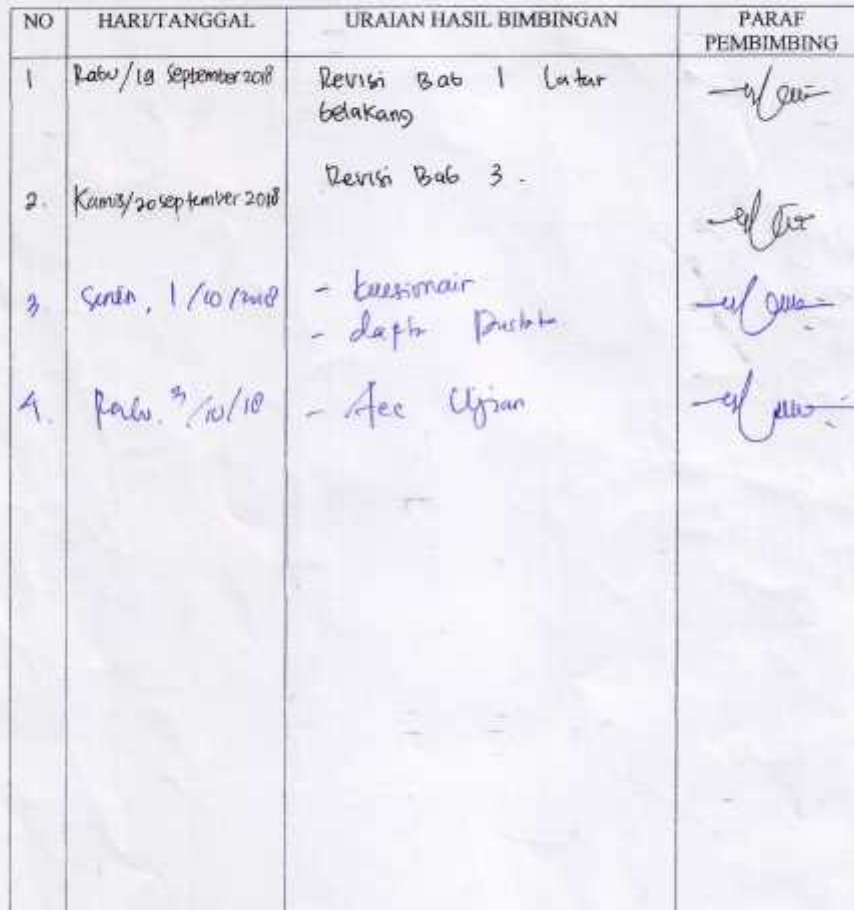 NO HARI/TANGGAL URAIAN HASIL BIMBINGAN PARAF
PEMBIMBING
1 Rabu/19 September 2018 Revisi Bab 1 Latar
belakang
2. Kamis/20 September 2018 Revisi Bab 3.
3 Senin, 1/10/2018 - kuesionair
- dapta Pustaka
4. Rabu, 3/10/18 - Acc Ujian